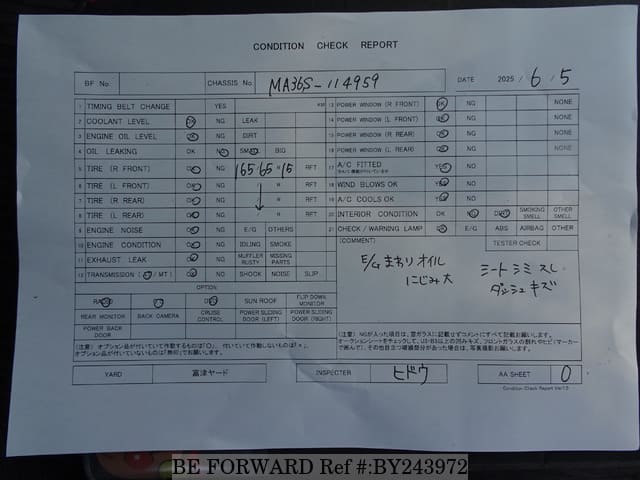 CONDITION CHECK REPORT
BF No. CHASSIS No. MA36S-114959 DATE 2025/6/5
1 TIMING BELT CHANGE YES KM
2 COOLANT LEVEL OK NG LEAK
3 ENGINE OIL LEVEL OK NG DIRT
4 OIL LEAKING OK NG SMALL BIG
5 TIRE (R FRONT) OK NG 165/65R15 RFT
6 TIRE (L FRONT) OK NG R RFT
7 TIRE (R REAR) OK NG R RFT
8 TIRE (L REAR) OK NG R RFT
9 ENGINE NOISE OK NG E/G OTHERS
10 ENGINE CONDITION OK NG IDLING SMOKE
11 EXHAUST LEAK OK NG MUFFLER RUSTY MISSING PARTS
12 TRANSMISSION (AT/MT) OK NG SHOCK NOISE SLIP
OPTION
RADIO CD DISC SUN ROOF FLIP DOWN MONITOR
REAR MONITOR BACK CAMERA CRUISE CONTROL POWER SLIDING DOOR (LEFT) POWER SLIDING DOOR (RIGHT)
POWER BACK DOOR
(注意) オプション品が付いていて作動するものは「○」、付いていて作動しないものは「×」、
オプション品が付いていないものは「無印」でお願いします。
13 POWER WINDOW (R FRONT) OK NG NONE
14 POWER WINDOW (L FRONT) OK NG NONE
15 POWER WINDOW (R REAR) OK NG NONE
16 POWER WINDOW (L REAR) OK NG NONE
17 A/C FITTED YES NG
18 WIND BLOWS OK YES NG
19 A/C COOLS OK YES NG
20 INTERIOR CONDITION OK NG DIRT SMOKING SMELL OTHER SMELL
21 CHECK / WARNING LAMP OK E/G ABS AIRBAG OTHER
(COMMENT) TESTER CHECK
E/G まわり オイル
にじみ大
シート シミ スレ
ダッシュ キズ
(注意) NGが入った項目は、窓ガラスに記載せずコメントにすべて記載お願いします。
YARD 富津ヤード INSPECTER ヒドウ AA SHEET 0
Condition Check Report Ver7.5
BE FORWARD Ref #:BY243972